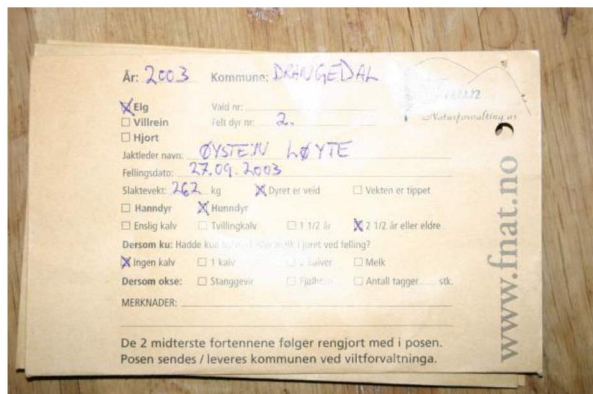 År: 2003 Kommune: DRANGEDAL
Elg Vald nr:
Villrein Felt dyr nr: 2.
Naturforvaltning as
Hjort
Jaktleder navn: ØYSTEIN LØYTE
Fellingsdato: 27.09.2003
Slaktevekt: 262 kg Dyret er veid Vekten er tippet
Hanndyr Hunndyr
Enslig kalv Tvillingkalv 1 1/2 år 2 1/2 år eller eldre
Dersom ku: Hadde kua i juret ved felling?
Ingen kalv 1 kalv 2 kalver Melk
Dersom okse: Stanggevir Antall tagger stk.
MERKNADER:
De 2 midterste fortennene følger rengjort med i posen.
Posen sendes / leveres kommunen ved viltforvaltninga.
www.fnat.no